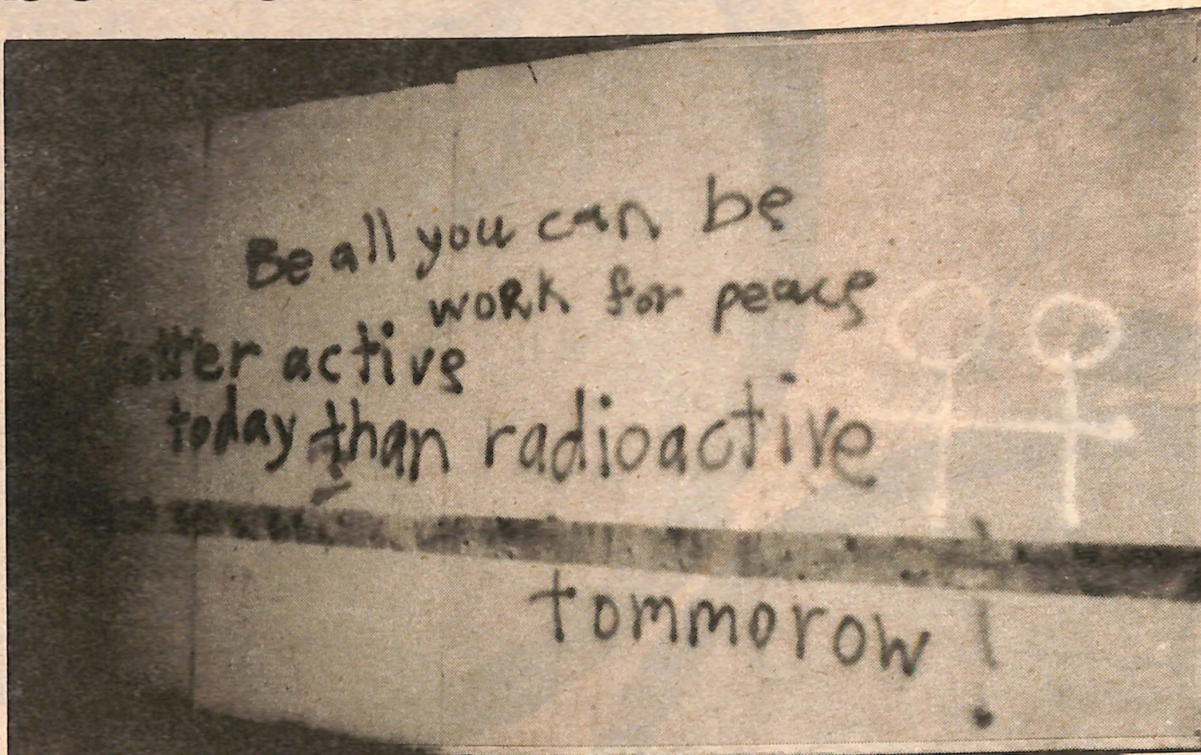 Be all you can be
work for peace
better active
today than radioactive
tommorow!